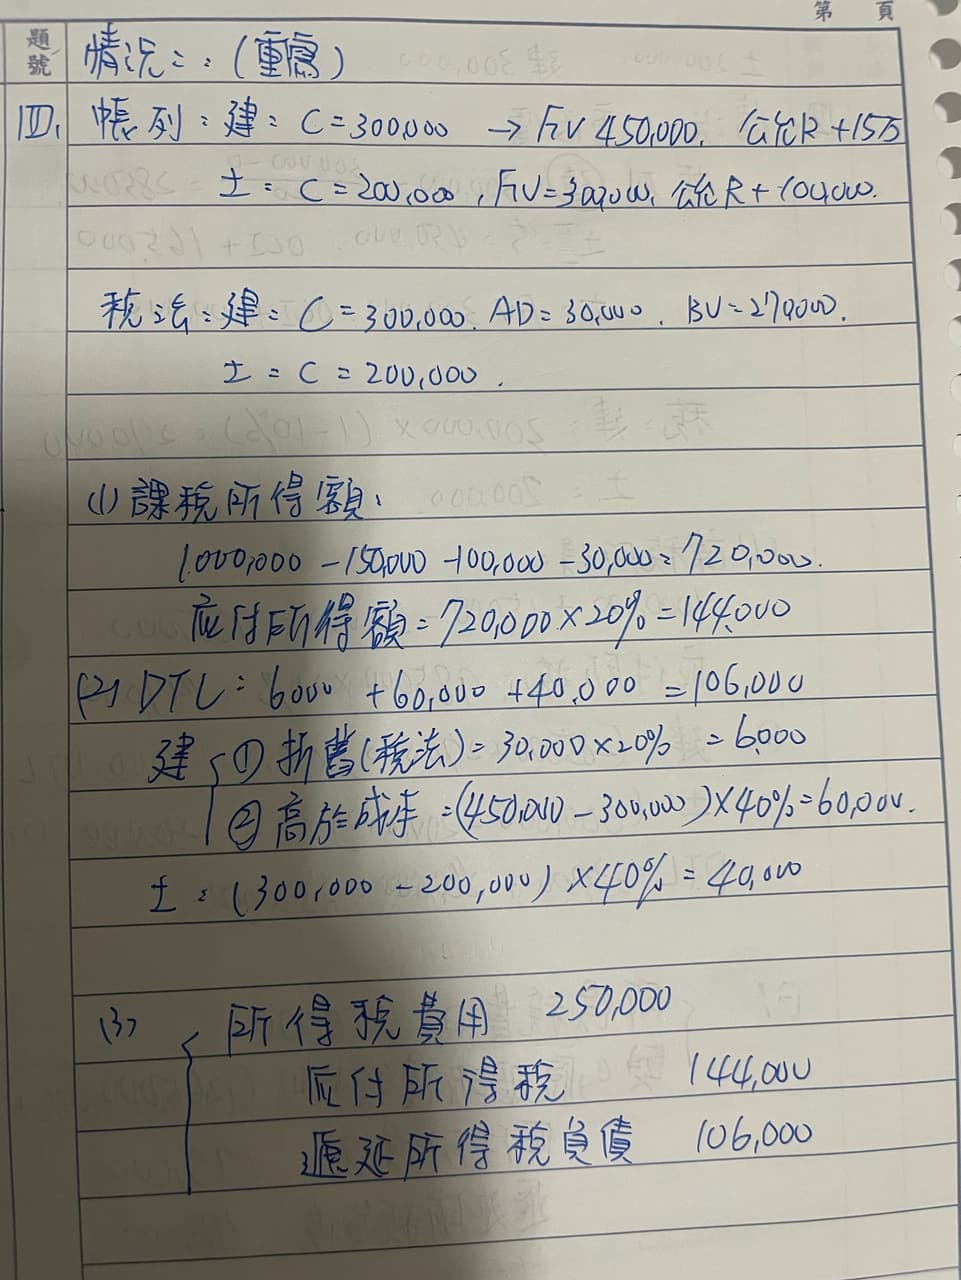 第 頁
題號
情況二：(重寫)
四、帳列：建：C=300,000 → FV 450,000. 公允R+15万
土：C=200,000, FV=300,000, 公允R+100,000.
稅法：建：C=300,000. AD=30,000. BV=270,000.
土：C=200,000.
(1) 課稅所得額：
1,000,000-150,000-100,000-30,000=720,000.
应付所得額=720,000×20%=144,000
(2) DTL：6000+60,000+40,000=106,000
建 ① 折舊(稅法)=30,000×20%=6,000
② 高於成本=(450,000-300,000)×40%=60,000.
土：(300,000-200,000)×40%=40,000
(3) 所得稅費用 250,000
应付所得稅 144,000
遞延所得稅負債 106,000